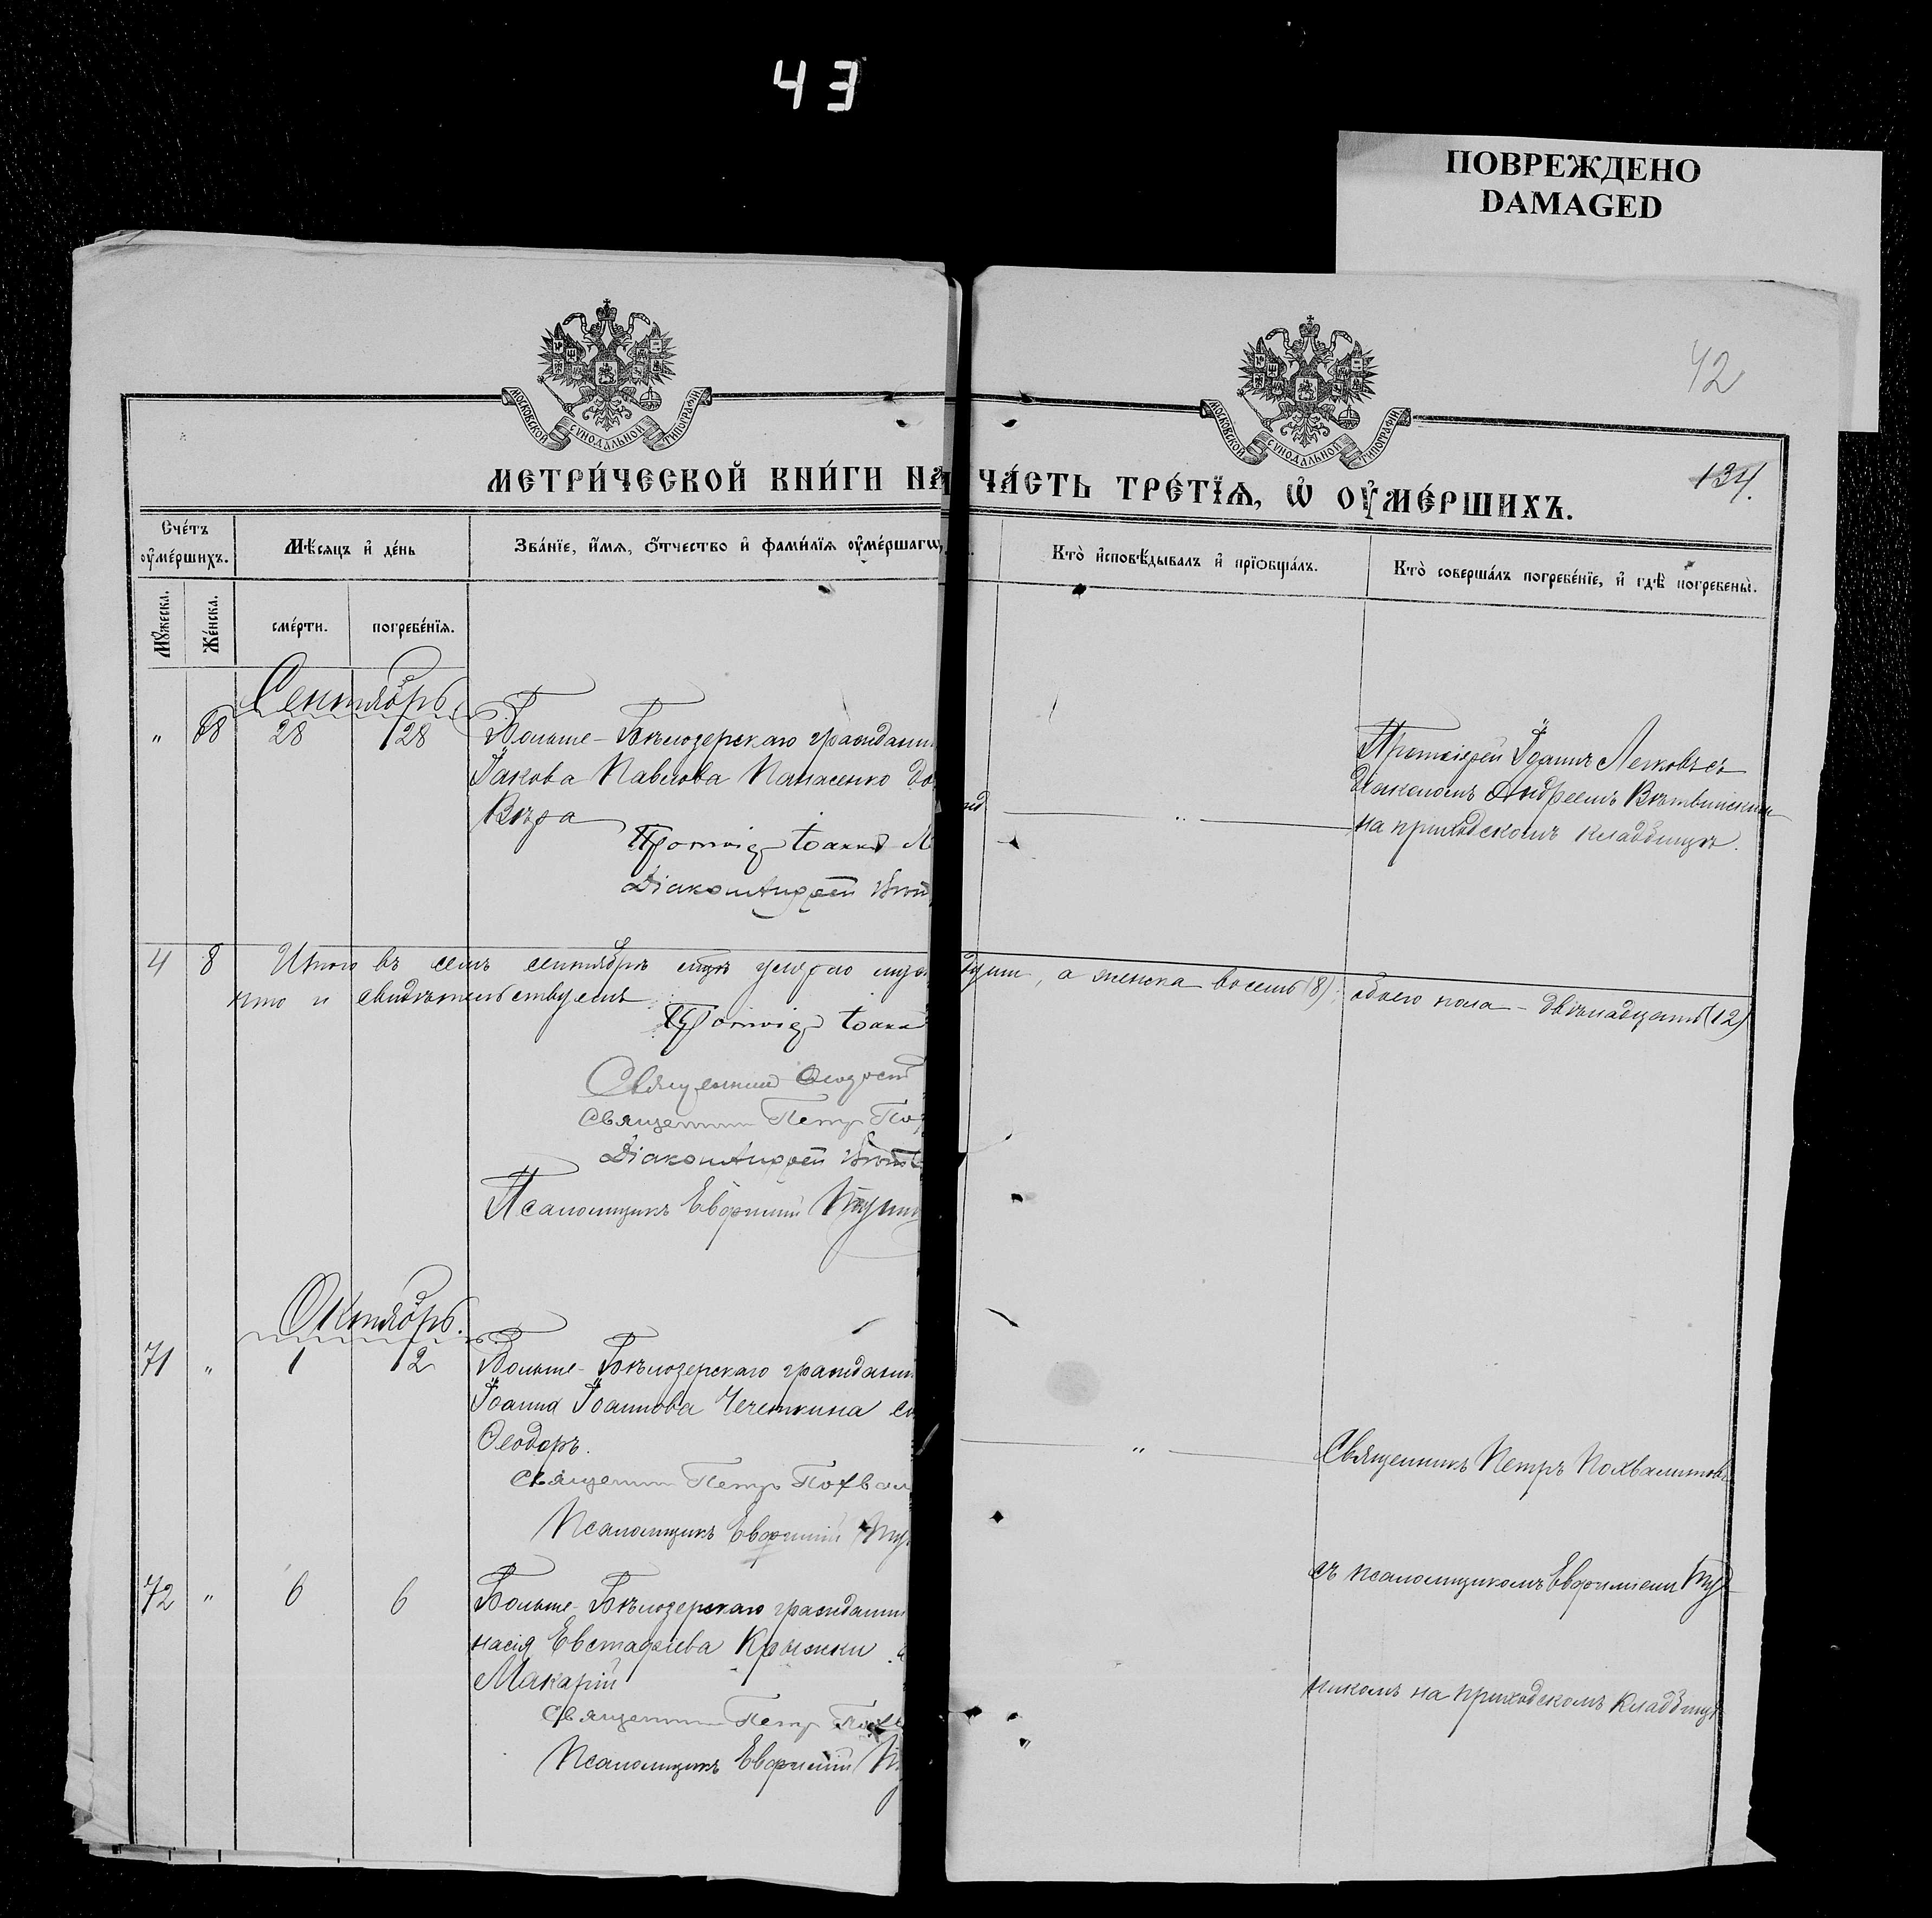 43
ПОВРЕЖДЕНО
DAMAGED
42
134.
МОСКОВСКОЙ СѴНОДАЛЬНОЙ ТИПОГРАФІИ
МОСКОВСКОЙ СѴНОДАЛЬНОЙ ТИПОГРАФІИ
МЕТРИ́ЧЕСКОЙ КНИ́ГИ НА
ЧА́СТЬ ТРЕ́ТЇѦ, Ѡ ОУМЕ́РШИХЪ.
Сче́тъ оуме́ршихъ.
Мѣ́сяцъ и де́нь
Зва́нїе, и́мѧ, о́тчество и фами́лїѧ оуме́ршагѡ,
Кто̀ исповѣ́дывалъ и прїобща́лъ.
Кто̀ соверша́лъ погребе́нїе, и гдѣ̀ погребены̀.
Мꙋ́жеска.
Же́нска.
сме́рти.
погребе́нїѧ.
Сентябрь
" 68 28 28 Больше-Бѣлозерскаго граждани
Іакова Павлова Панасенко до
Вѣра
Протоіер Іоаннъ Л
Діаконъ Андрей
Протоіерей Іоаннъ Легковъ съ
діакономъ Андреемъ Вѣтвинскимъ
на приходскомъ кладбищѣ.
4 8 Итого въ семъ сентябрѣ м-цѣ умерло муж
душ, а женска восемь (8), обоего пола - двѣнадцать (12)
что и свидѣтельствуемъ:
Протоіер Іоанн
Священник Ѳеодосій
Священник Петр По
Діаконъ Андрей
Псаломщикъ Евфимій
Октябрь.
71 " 1 2 Больше-Бѣлозерскаго граждани
Іоанна Іоаннова Чечеткина сы
Ѳеодоръ.
Священник Петръ Похвал
Псаломщикъ Евфимій
Священникъ Петръ Похвалитовъ
72 " 6 6 Больше-Бѣлозерскаго граждани
насія Евстафіева Крыжки
Макарій
Священник Петр
Псаломщикъ Евфимій
съ псаломщикомъ Евфиміемъ
никомъ на приходскомъ кладбищѣ